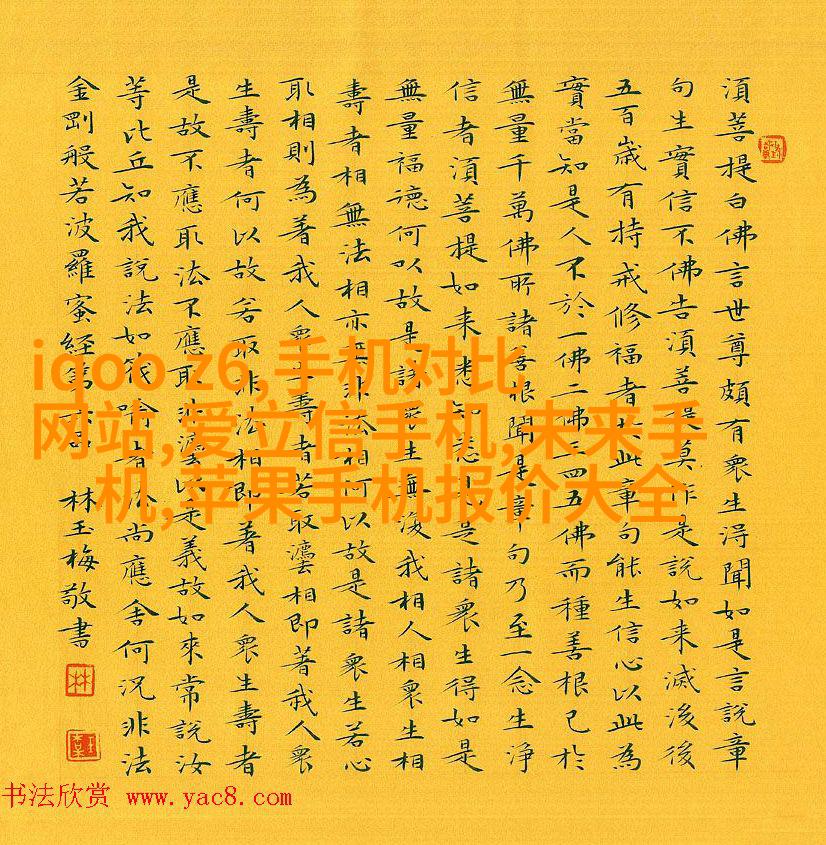 須菩提白佛言世尊頗有衆生得聞如是言說章
句生實信不佛告須菩提莫作是說如来滅後後
五百歲有持戒修福者於此章句能生信心以此為
實當知是人不於一佛二佛三四五佛而種善根已於
無量千萬佛所諸善根聞是章句乃至一念生淨
信者須菩提如来悉知悉見是諸衆生得如是
無量福德何以故是諸衆生無復我相人相衆生相
壽者相無法相亦無非法相何以故是諸衆生若心
取相則為著我人衆生壽者若取灋相即著我人衆
生壽者何以故若取非法相即著我人衆生壽者
是故不應取法不應取非灋以是義故如來常說汝
等比丘知我說法如筏喻者法尚應舍何況非法
金剛般若波羅蜜經第六品 林玉梅敬書
林
iqoo z6,手机对比
网站,爱立信手机,未来手
机,苹果手机报价大全
书法欣赏 www.yac8.com